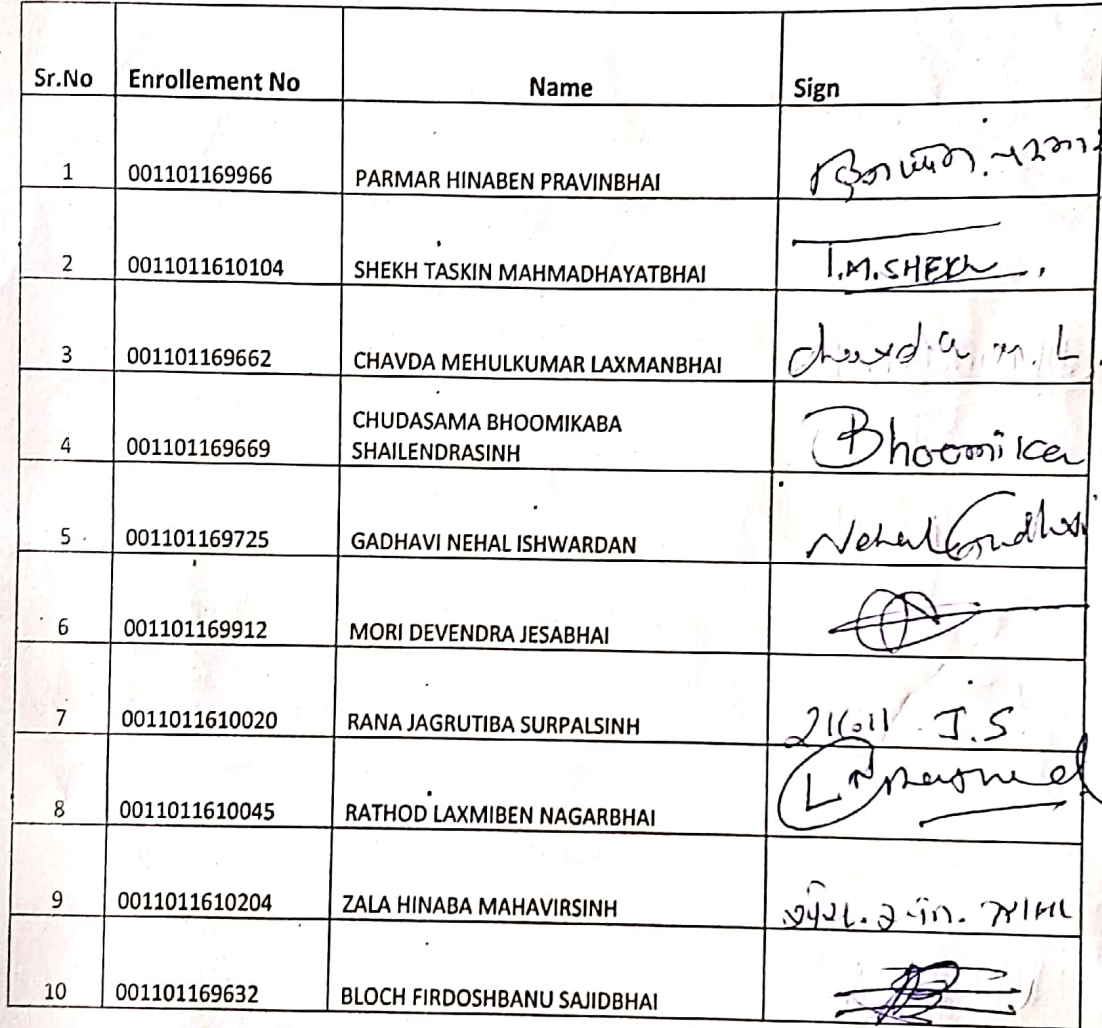 Sr.No Enrollement No Name Sign
1 001101169966 PARMAR HINABEN PRAVINBHAI
2 0011011610104 SHEKH TASKIN MAHMADHAYATBHAI T.M.SHEKH
3 001101169662 CHAVDA MEHULKUMAR LAXMANBHAI chavda M.L.
4 001101169669 CHUDASAMA BHOOMIKABA
SHAILENDRASINH Bhoomika
5 001101169725 GADHAVI NEHAL ISHWARDAN Nehal Gadhavi
6 001101169912 MORI DEVENDRA JESABHAI
7 0011011610020 RANA JAGRUTIBA SURPALSINH J.S
8 0011011610045 RATHOD LAXMIBEN NAGARBHAI
9 0011011610204 ZALA HINABA MAHAVIRSINH
10 001101169632 BLOCH FIRDOSHBANU SAJIDBHAI